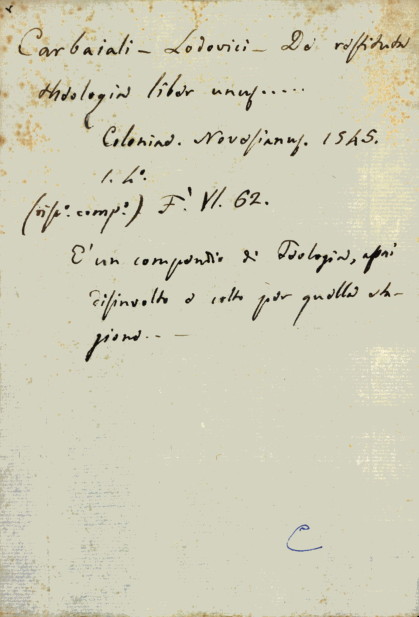 Carbaiali - Lodovici - De restituta
theologia liber unus.....
Coloniae. Novesianus. 1545.
1. 4º.
(risp.º comp.º) F. VI. 62.
E' un compendio di Teologia, assai
disinvolto e colto per quella sta-
gione.. -
C